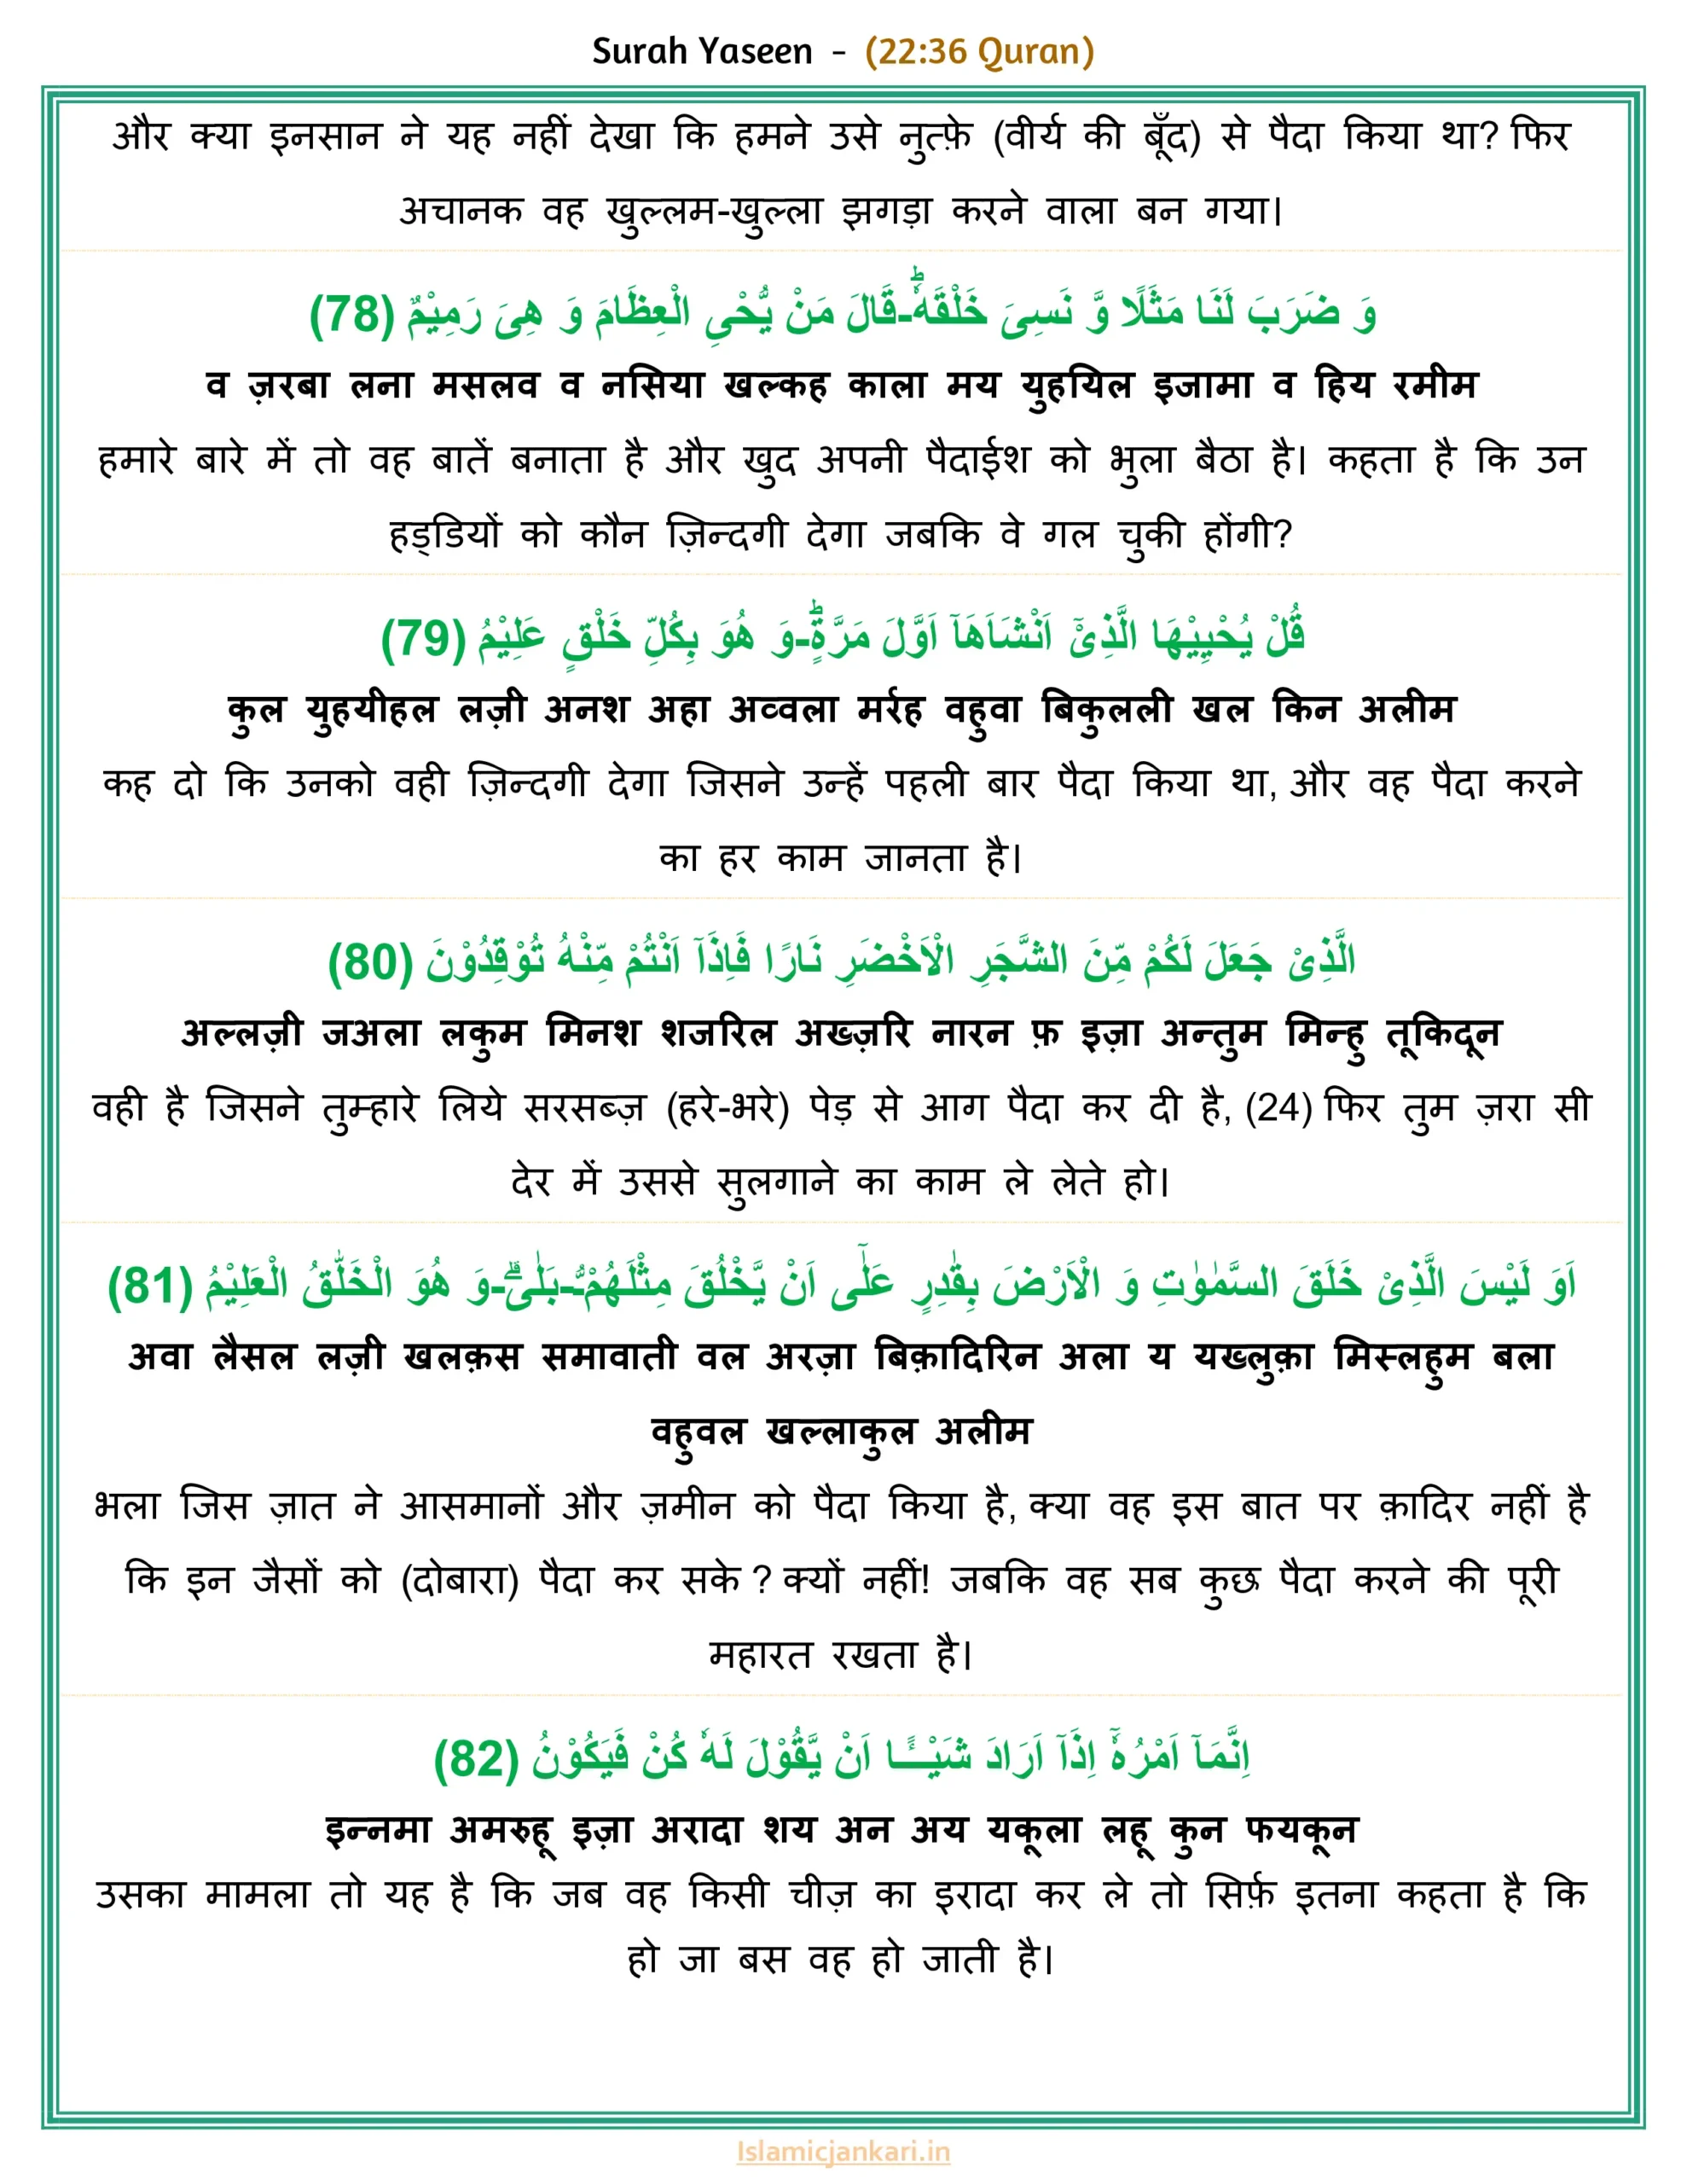 Surah Yaseen - (22:36 Quran)
और क्या इनसान ने यह नहीं देखा कि हमने उसे नुत्फ़े (वीर्य की बूँद) से पैदा किया था? फिर
अचानक वह खुल्लम-खुल्ला झगड़ा करने वाला बन गया।
وَ ضَرَبَ لَنَا مَثَلًا وَّ نَسِیَ خَلْقَهٗؕ-قَالَ مَنْ یُّحْیِ الْعِظَامَ وَ هِیَ رَمِیْمٌ (78)
व ज़रबा लना मसलव व नसिया खल्कह काला मय युहयिल इजामा व हिय रमीम
हमारे बारे में तो वह बातें बनाता है और खुद अपनी पैदाईश को भुला बैठा है। कहता है कि उन
हड्डियों को कौन ज़िन्दगी देगा जबकि वे गल चुकी होंगी?
قُلْ یُحْیِیْهَا الَّذِیْۤ اَنْشَاَهَاۤ اَوَّلَ مَرَّةٍؕ-وَ هُوَ بِكُلِّ خَلْقٍ عَلِیْمُ (79)
कुल युहयीहल लज़ी अनश अहा अव्वला मर्रह वहुवा बिकुलली खल किन अलीम
कह दो कि उनको वही ज़िन्दगी देगा जिसने उन्हें पहली बार पैदा किया था, और वह पैदा करने
का हर काम जानता है।
الَّذِیْ جَعَلَ لَكُمْ مِّنَ الشَّجَرِ الْاَخْضَرِ نَارًا فَاِذَاۤ اَنْتُمْ مِّنْهُ تُوْقِدُوْنَ (80)
अल्लज़ी जअला लकुम मिनश शजरिल अख्ज़रि नारन फ़ इज़ा अन्तुम मिन्हु तूकिदून
वही है जिसने तुम्हारे लिये सरसब्ज़ (हरे-भरे) पेड़ से आग पैदा कर दी है, (24) फिर तुम ज़रा सी
देर में उससे सुलगाने का काम ले लेते हो।
اَوَ لَیْسَ الَّذِیْ خَلَقَ السَّمٰوٰتِ وَ الْاَرْضَ بِقٰدِرٍ عَلٰۤى اَنْ یَّخْلُقَ مِثْلَهُمْﳳ-بَلٰىۗ-وَ هُوَ الْخَلّٰقُ الْعَلِیْمُ (81)
अवा लैसल लज़ी खलक़स समावाती वल अरज़ा बिक़ादिरिन अला य यख्लुक़ा मिस्लहुम बला
वहुवल खल्लाकुल अलीम
भला जिस ज़ात ने आसमानों और ज़मीन को पैदा किया है, क्या वह इस बात पर क़ादिर नहीं है
कि इन जैसों को (दोबारा) पैदा कर सके ? क्यों नहीं! जबकि वह सब कुछ पैदा करने की पूरी
महारत रखता है।
اِنَّمَاۤ اَمْرُهٗۤ اِذَاۤ اَرَادَ شَیْــٴًـا اَنْ یَّقُوْلَ لَهٗ كُنْ فَیَكُوْنُ (82)
इन्नमा अमरुहू इज़ा अरादा शय अन अय यकूला लहू कुन फयकून
उसका मामला तो यह है कि जब वह किसी चीज़ का इरादा कर ले तो सिर्फ़ इतना कहता है कि
हो जा बस वह हो जाती है।
Islamicjankari.in